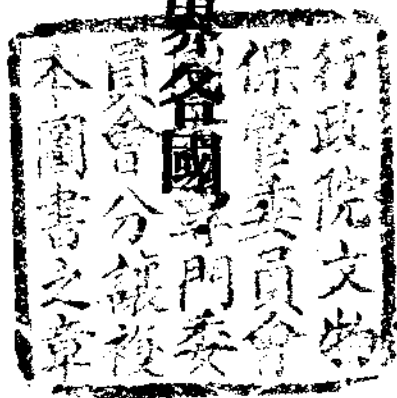 行政院文物
保管委員會
界各國
專門委
員會分讓複
本圖書之章